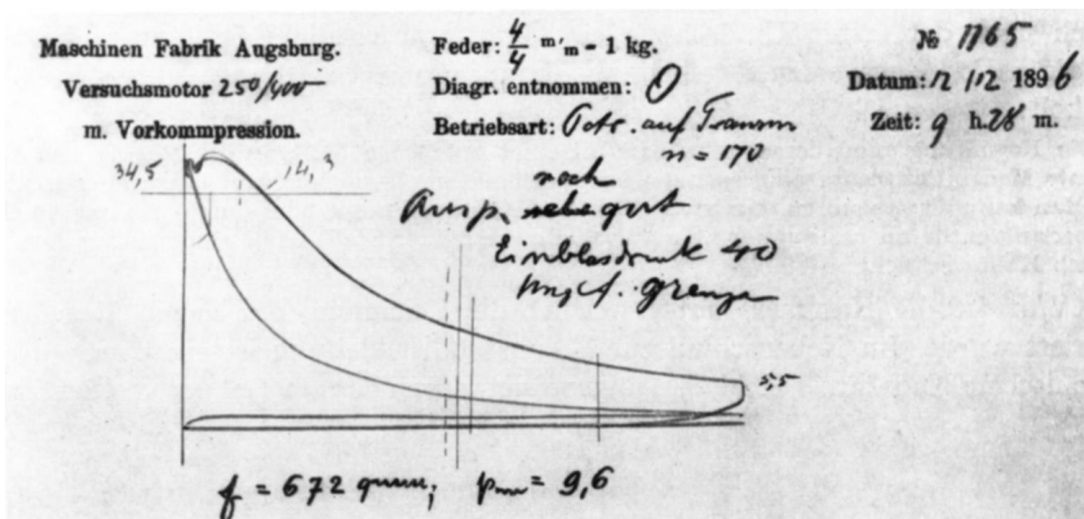 Maschinen Fabrik Augsburg.
Versuchsmotor 250/400
m. Vorkommpression.
Feder: 4/4 m/m = 1 kg.
Diagr. entnommen: O
Betriebsart: auf Transm
n = 170
№ 1165
Datum: 12/12 1896
Zeit: 9 h. 28 m.
34,5
14,3
noch
Ausp. gut
Einblasdruck 40
grenze
2,5
f = 672 qmm; pm = 9,6